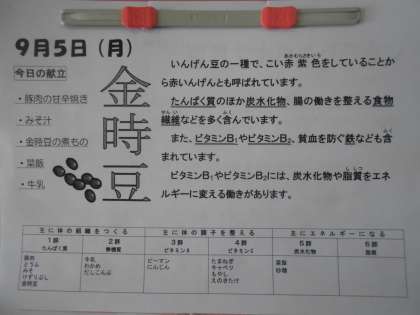 9月5日（月）
今日の献立
・豚肉の甘辛焼き
・みそ汁
・金時豆の煮もの
・菜飯
・牛乳
金時豆
いんげん豆の一種で、こい赤紫色をしていることか
ら赤いんげんとも呼ばれています。
たんぱく質のほか炭水化物、腸の働きを整える食物
繊維などを多く含んでいます。
また、ビタミンB₁やビタミンB₂、貧血を防ぐ鉄なども含
まれています。
ビタミンB₁やビタミンB₂には、炭水化物や脂質をエネ
ルギーに変える働きがあります。
主に体の組織をつくる 主に体の調子を整える 主にエネルギーになる
1群 2群 3群 4群 5群 6群
たんぱく質 無機質 ビタミンA ビタミンC 炭水化物 脂肪
豚肉 牛乳 ピーマン たまねぎ 菜飯
とうふ わかめ にんじん キャベツ 砂糖
みそ だしこんぶ もやし
けずりぶし えのきたけ
金時豆